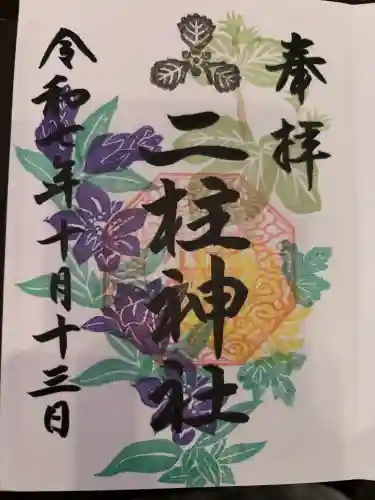 奉拝
二柱神社
令和七年十月十三日